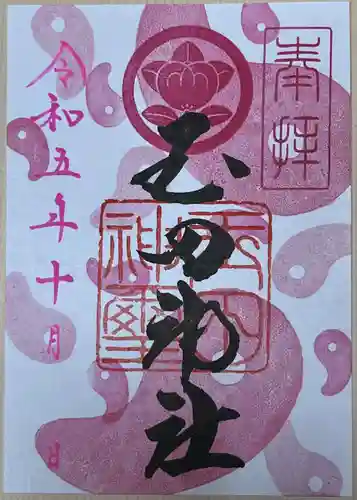 奉拝
玉田神社
玉田
神璽
令和五年十月 日